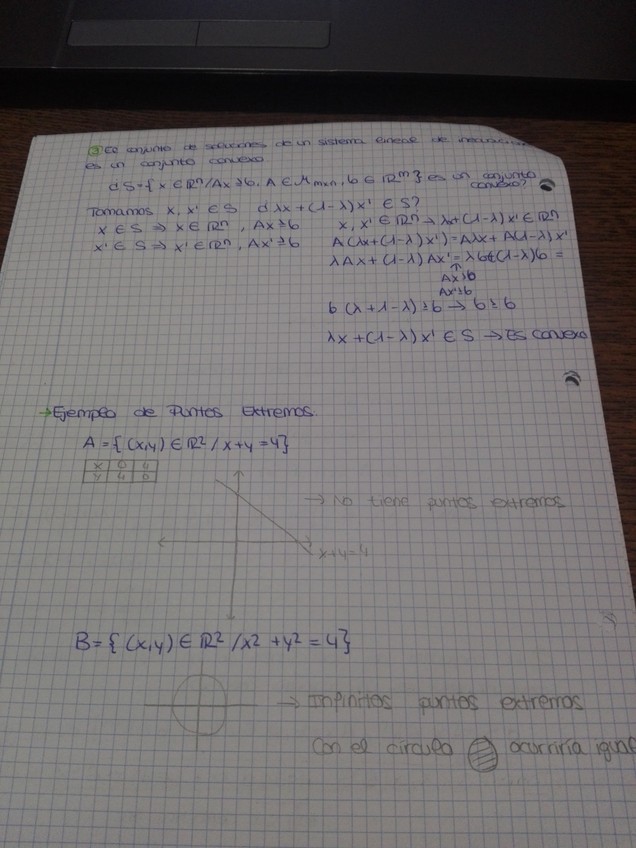 ③ El conjunto de soluciones de un sistema lineal de
es un conjunto convexo
¿S={x ∈ ℝⁿ/Ax ≥ b, A ∈ Mmxn, b ∈ ℝᵐ} es un conjunto
convexo?
Tomamos x, x' ∈ S ¿λx + (1-λ)x' ∈ S?
x ∈ S ⇒ x ∈ ℝⁿ, Ax ≥ b
x' ∈ S ⇒ x' ∈ ℝⁿ, Ax' ≥ b
x, x' ∈ ℝⁿ → λx + (1-λ)x' ∈ ℝⁿ
A(λx + (1-λ)x') = Aλx + A(1-λ)x'
λAx + (1-λ)Ax' = λb + (1-λ)b =
↑
Ax ≥ b
Ax' ≥ b
b(λ + 1 - λ) ≥ b → b ≥ b
λx + (1-λ)x' ∈ S → Es convexo
→ Ejemplo de Puntos Extremos.
A = {(x,y) ∈ ℝ² / x+y = 4}
x 0 4
y 4 0
→ No tiene puntos extremos
x+y=4
B = {(x,y) ∈ ℝ² / x² + y² = 4}
→ Infinitos puntos extremos
Con el círculo ocurriría igual